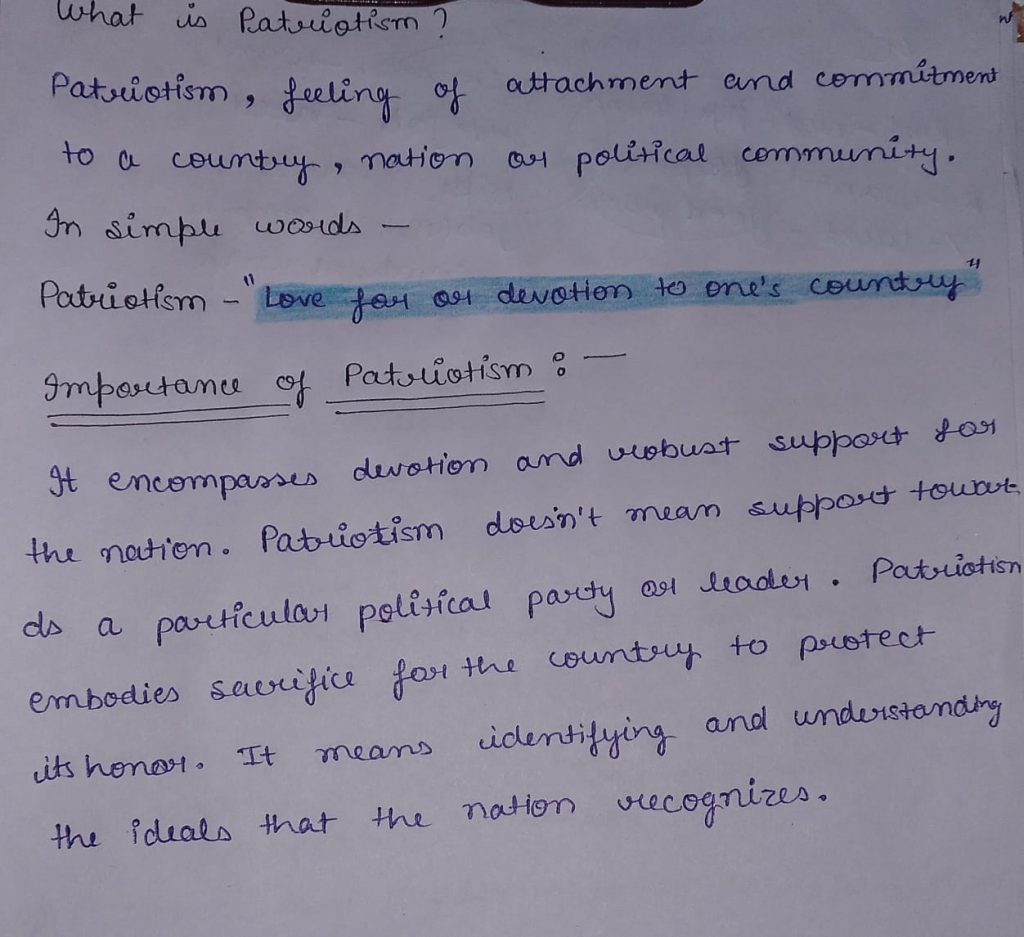 What is Patriotism ?
Patriotism , feeling of attachment and commitment
to a country , nation or political community.
In simple words —
Patriotism – "Love for or devotion to one's country"
Importance of Patriotism : —
It encompasses devotion and robust support for
the nation. Patriotism doesn't mean support towar-
ds a particular political party or leader. Patriotism
embodies sacrifice for the country to protect
its honor. It means identifying and understanding
the ideals that the nation recognizes.